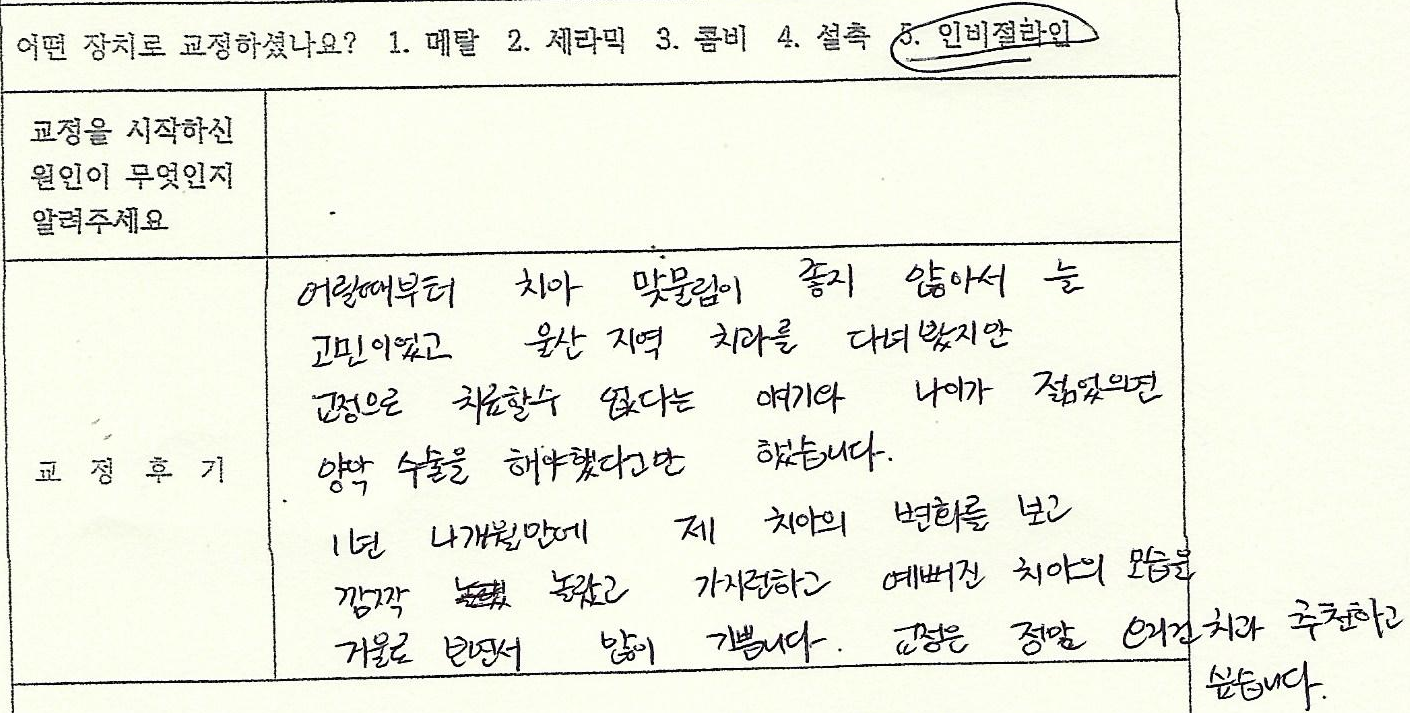 어떤 장치로 교정하셨나요? 1. 메탈 2. 세라믹 3. 콤비 4. 설측 5. 인비절라인
교정을 시작하신
원인이 무엇인지
알려주세요
교 정 후 기
어릴때부터 치아 맞물림이 좋지 않아서 늘
고민이었고 울산 지역 치과를 다녀봤지만
교정으로 치료할수 없다는 얘기와 나이가 젊었으면
양악 수술을 해야했다고만 했습니다.
1년 4개월만에 제 치아의 변화를 보고
깜짝 놀랐고 가지런하고 예뻐진 치아의 모습을
거울로 보면서 많이 기쁩니다. 교정은 정말 치과 추천하고
싶습니다.